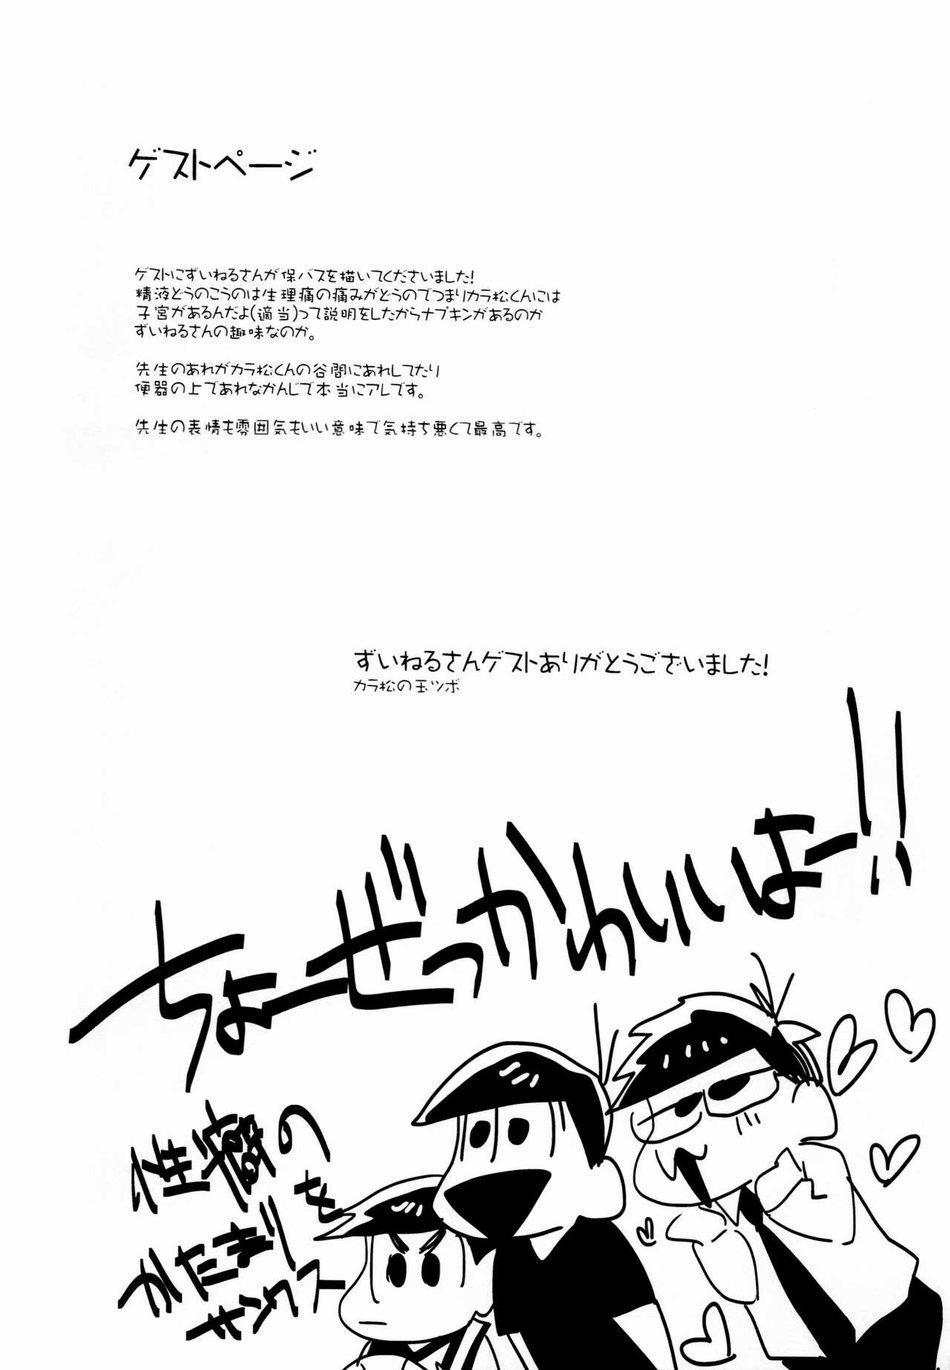 ゲストページ
ゲストにずいねるさんが保バスを描いてくださいました！
精液どうのこうのは生理痛の痛みがどうのでつまりカラ松くんには
子宮があるんだよ(適当)って説明をしたからナプキンがあるのか
ずいねるさんの趣味なのか。
先生のあれがカラ松くんの谷間にあれしてたり
便器の上であれなかんじで本当にアレです。
先生の表情も雰囲気もいい意味で気持ち悪くて最高です。
ずいねるさんゲストありがとうございました！
カラ松の玉ツボ
ちょーぜつかわいいよー!!
性癖の
かたまりを
サンクス